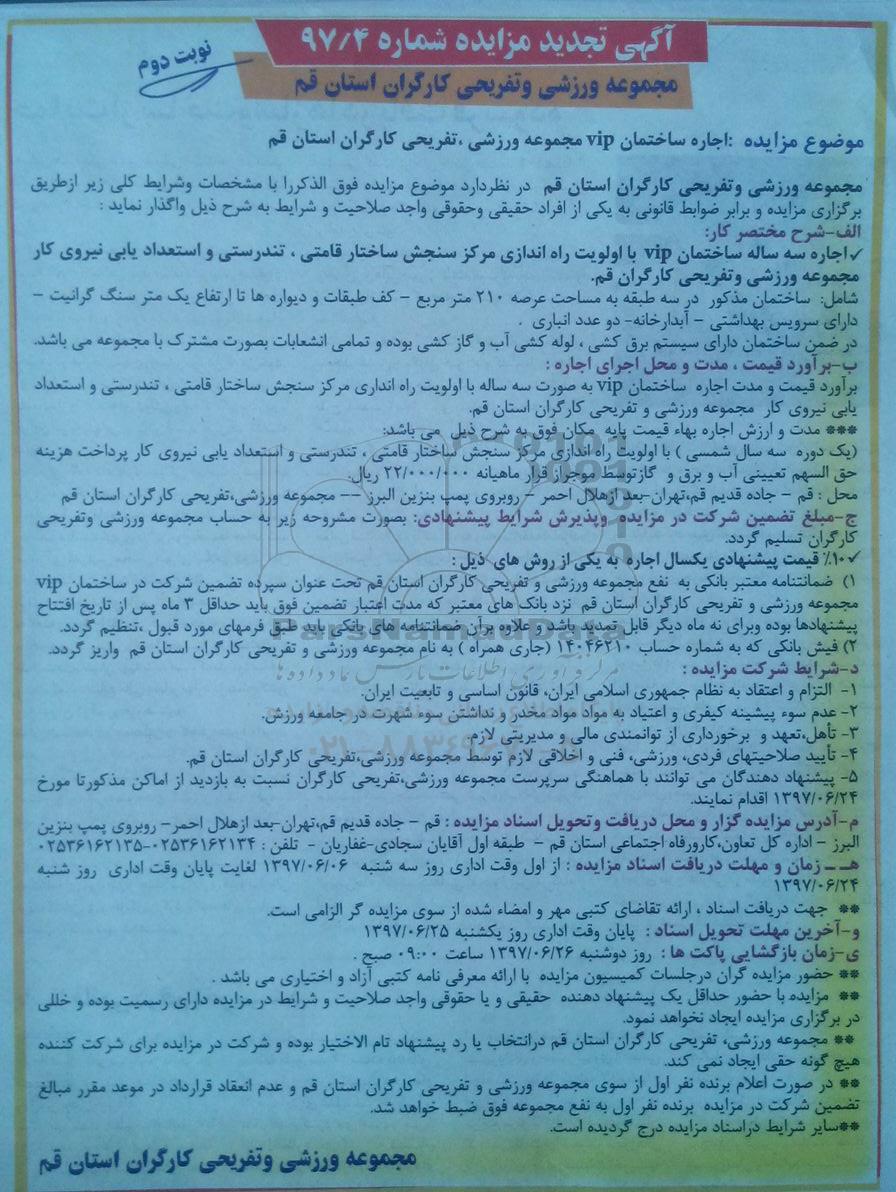 آگهی تجدید مزایده شماره ۹۷/۴
نوبت دوم
مجموعه ورزشی وتفریحی کارگران استان قم
موضوع مزایده :اجاره ساختمان vip مجموعه ورزشی ،تفریحی کارگران استان قم
مجموعه ورزشی وتفریحی کارگران استان قم در نظردارد موضوع مزایده فوق الذکررا با مشخصات وشرایط کلی زیر ازطریق
برگزاری مزایده و برابر ضوابط قانونی به یکی از افراد حقیقی وحقوقی واجد صلاحیت و شرایط به شرح ذیل واگذار نماید :
الف-شرح مختصر کار:
✓اجاره سه ساله ساختمان vip با اولویت راه اندازی مرکز سنجش ساختار قامتی ، تندرستی و استعداد یابی نیروی کار
مجموعه ورزشی وتفریحی کارگران قم.
شامل: ساختمان مذکور در سه طبقه به مساحت عرصه ۲۱۰ متر مربع – کف طبقات و دیواره ها تا ارتفاع یک متر سنگ گرانیت –
دارای سرویس بهداشتی – آبدارخانه- دو عدد انباری .
در ضمن ساختمان دارای سیستم برق کشی ، لوله کشی آب و گاز کشی بوده و تمامی انشعابات بصورت مشترک با مجموعه می باشد.
ب-برآورد قیمت ، مدت و محل اجرای اجاره :
برآورد قیمت و مدت اجاره ساختمان vip به صورت سه ساله با اولویت راه انداری مرکز سنجش ساختار قامتی ، تندرستی و استعداد
یابی نیروی کار مجموعه ورزشی و تفریحی کارگران استان قم.
*** مدت و ارزش اجاره بهاء قیمت پایه مکان فوق به شرح ذیل می باشد:
(یک دوره سه سال شمسی ) با اولویت راه اندازی مرکز سنجش ساختار قامتی ، تندرستی و استعداد یابی نیروی کار پرداخت هزینه
حق السهم تعیینی آب و برق و گازتوسط موجراز قرار ماهیانه ۲۲/۰۰۰/۰۰۰ ریال.
محل : قم – جاده قدیم قم،تهران-بعد ازهلال احمر – روبروی پمپ بنزین البرز –- مجموعه ورزشی،تفریحی کارگران استان قم
ج-مبلغ تضمین شرکت در مزایده وپذیرش شرایط پیشنهادی: بصورت مشروحه زیر به حساب مجموعه ورزشی وتفریحی
کارگران تسلیم گردد.
✓۱۰٪ قیمت پیشنهادی یکسال اجاره به یکی از روش های ذیل :
۱) ضمانتنامه معتبر بانکی به نفع مجموعه ورزشی و تفریحی کارگران استان قم تحت عنوان سپرده تضمین شرکت در ساختمان vip
مجموعه ورزشی و تفریحی کارگران استان قم نزد بانک های معتبر که مدت اعتبار تضمین فوق باید حداقل ۳ ماه پس از تاریخ افتتاح
پیشنهادها بوده وبرای نه ماه دیگر قابل تمدید باشد و علاوه برآن ضمانتنامه های بانکی باید طبق فرمهای مورد قبول ،تنظیم گردد.
۲) فیش بانکی که به شماره حساب ۱۴۰۴۶۲۱۰ (جاری همراه ) به نام مجموعه ورزشی و تفریحی کارگران استان قم واریز گردد.
د-شرایط شرکت مزایده :
۱- التزام و اعتقاد به نظام جمهوری اسلامی ایران، قانون اساسی و تابعیت ایران.
۲-عدم سوء پیشینه کیفری و اعتیاد به مواد مواد مخدر و نداشتن سوء شهرت در جامعه ورزش.
۳- تأهل،تعهد و برخورداری از توانمندی مالی و مدیریتی لازم
۴- تأیید صلاحیتهای فردی، ورزشی، فنی و اخلاقی لازم توسط مجموعه ورزشی،تفریحی کارگران استان قم.
۵- پیشنهاد دهندگان می توانند با هماهنگی سرپرست مجموعه ورزشی،تفریحی کارگران نسبت به بازدید از اماکن مذکورتا مورخ
۱۳۹۷/۰۶/۲۴ اقدام نمایند.
م-آدرس مزایده گزار و محل دریافت وتحویل اسناد مزایده : قم – جاده قدیم قم،تهران-بعد ازهلال احمر- روبروی پمپ بنزین
البرز – اداره کل تعاون،کارورفاه اجتماعی استان قم – طبقه اول آقایان سجادی-غفاریان - تلفن : ۰۲۵۳۶۱۶۲۱۳۴-۰۲۵۳۶۱۶۲۱۳۵
هـ ـ زمان و مهلت دریافت اسناد مزایده : از اول وقت اداری روز سه شنبه ۱۳۹۷/۰۶/۰۶ لغایت پایان وقت اداری روز شنبه
۱۳۹۷/۰۶/۲۴
** جهت دریافت اسناد ، ارائه تقاضای کتبی مهر و امضاء شده از سوی مزایده گر الزامی است.
و-آخرین مهلت تحویل اسناد : پایان وقت اداری روز یکشنبه ۱۳۹۷/۰۶/۲۵
ی-زمان بازگشایی پاکت ها : روز دوشنبه ۱۳۹۷/۰۶/۲۶ ساعت ۰۹:۰۰ صبح .
** حضور مزایده گران درجلسات کمیسیون مزایده با ارائه معرفی نامه کتبی آزاد و اختیاری می باشد .
** مزایده با حضور حداقل یک پیشنهاد دهنده حقیقی و یا حقوقی واجد صلاحیت و شرایط در مزایده دارای رسمیت بوده و خللی
در برگزاری مزایده ایجاد نخواهد نمود.
** مجموعه ورزشی، تفریحی کارگران استان قم درانتخاب یا رد پیشنهاد تام الاختیار بوده و شرکت در مزایده برای شرکت کننده
هیچ گونه حقی ایجاد نمی کند.
** در صورت اعلام برنده نفر اول از سوی مجموعه ورزشی و تفریحی کارگران استان قم و عدم انعقاد قرارداد در موعد مقرر مبالغ
تضمین شرکت در مزایده برنده نفر اول به نفع مجموعه فوق ضبط خواهد شد.
**سایر شرایط دراسناد مزایده درج گردیده است.
مجموعه ورزشی وتفریحی کارگران استان قم
ParsNamadData